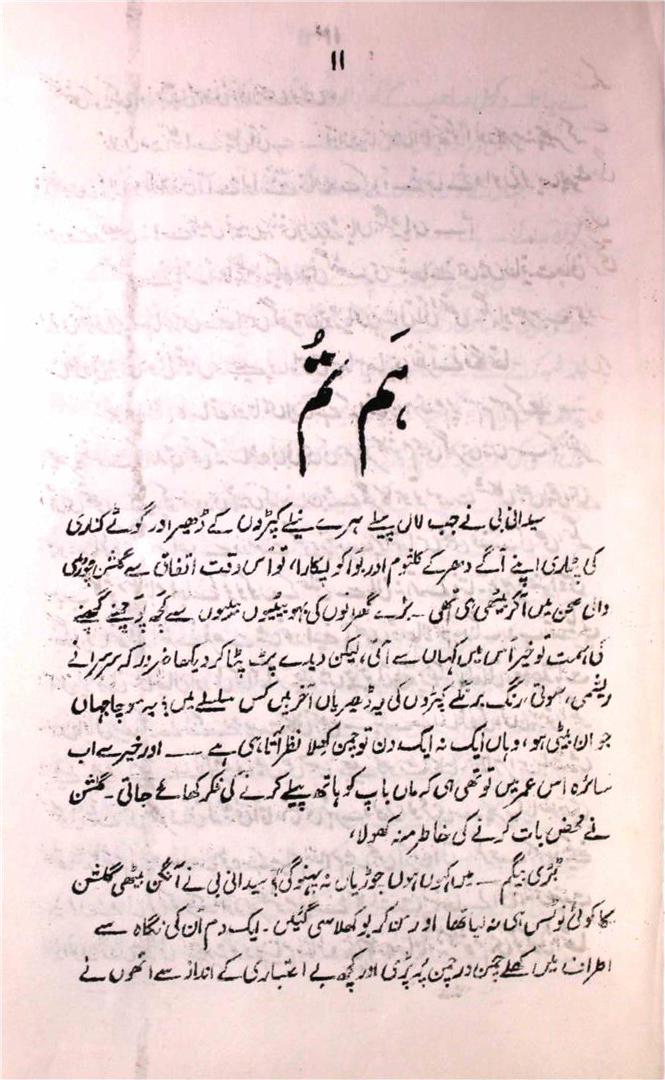 ۱۱
ہَم تُم
سیدانی بی نے جب لال پیلے ہرے نیلے کپڑوں کے ڈھیر اور گوٹے کناری
کی پٹاری اپنے آگے دھر کے کلثوم اور بوا کو پکارا، تو اُس وقت اتفاق سے گلشن چوڑی
والی صحن میں آکر بیٹھی ہی تھی ۔ بڑے گھرانوں کی بہو بیٹیوں بیبیوں سے کچھ پوچھنے گچھنے
کی ہمت تو خیر اُس میں کہاں سے آتی، لیکن دیدے پٹ پٹا کر دیکھا ضرور کہ سرسراتے
ریشمی، سوتی، رنگ برنگے کپڑوں کی یہ ڈھیریاں آخر ہیں کس سلسلے میں؟ یہ سوچا جہاں
جوان بیٹی ہو، وہاں ایک نہ ایک دن تو چمن کھلا نظر آتا ہی ہے — اور خیر سے اب
سائرہ اس عمر میں تو تھی ہی کہ ماں باپ کو ہاتھ پیلے کرنے کی فکر کھائے جاتی ۔ گلشن
نے محض بات کرنے کی خاطر منہ کھولا،
بڑی بیگم — میں کہوں ہوں چوڑیاں نہ پہنوگی؟ سیدانی بی نے آنگن بیٹھی گلشن
کا کوئی نوٹس ہی نہ لیا تھا اور سن کر بوکھلا سی گئیں ۔ ایک دم اُن کی نگاہ سے
اطراف میں کھلے چمن در چمن پہ پڑی اور کچھ بے اعتباری کے انداز سے انھوں نے